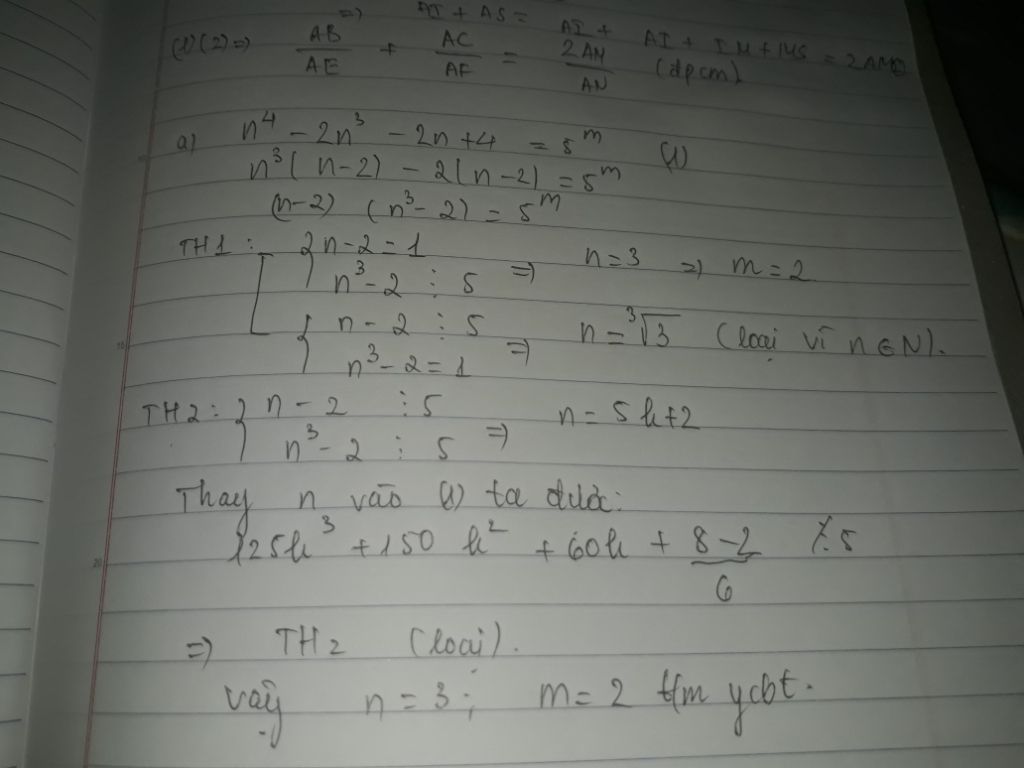 => AI + AS = AI + AI + IM + MS = 2AM
(1)(2) => AB/AE + AC/AF = 2AM/AN (đpcm)
a) n⁴ - 2n³ - 2n + 4 = 5ᵐ (1)
n³(n-2) - 2(n-2) = 5ᵐ
(n-2) (n³-2) = 5ᵐ
TH1: { n-2 = 1
n³-2 ⋮ 5 => n = 3 => m = 2
{ n-2 ⋮ 5
n³-2 = 1 => n = ³√3 (loại vì n ∈ N).
TH2: { n-2 ⋮ 5
n³-2 ⋮ 5 => n = 5k+2
Thay n vào (1) ta được:
125k³ + 150k² + 60k + 8-2 ⋮̸ 5
6
=> TH2 (loại).
vậy n = 3; m = 2 t/m ycbt.